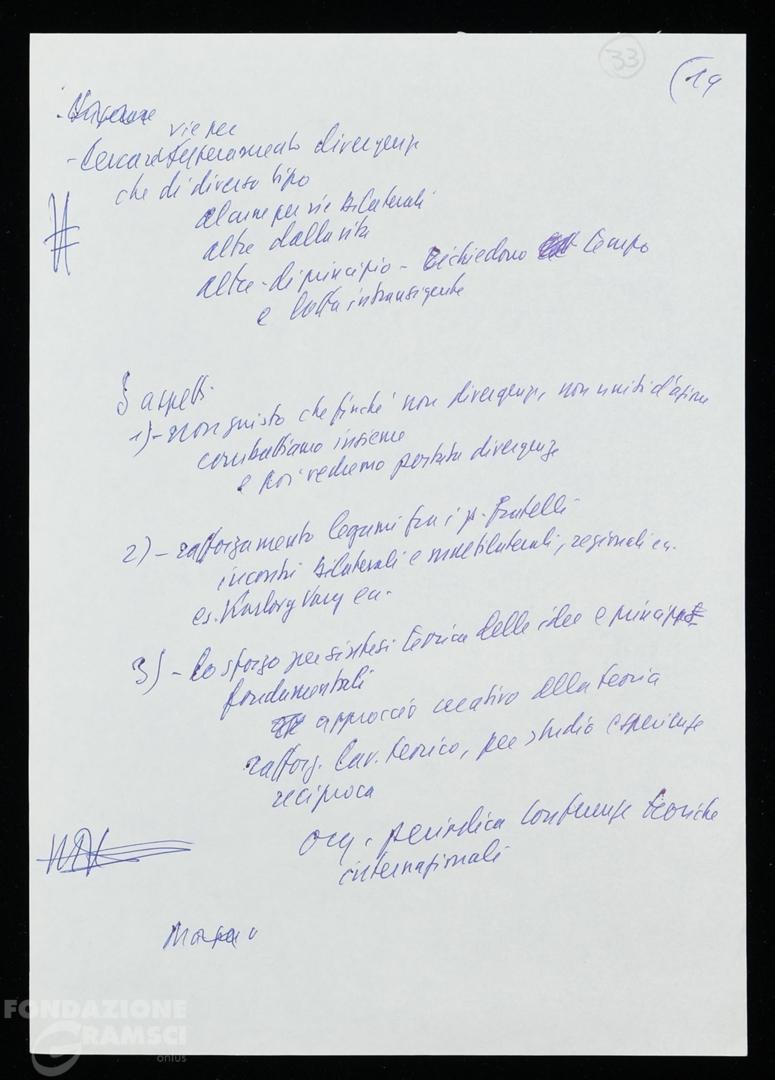 33
(19
vie per
- Cercare superamento divergenze
che di diverso tipo
alcune per vie bilaterali
altre dalla vita
altre - di principio - richiedono tempo
e lotta intransigente
3 aspetti
1) - non giusto che finché non divergenze, non unità d'azione
combattiamo insieme
e poi vedremo portata divergenze
2) - rafforzamento legami fra i p. fratelli
incontri bilaterali e multilaterali, regionali ecc.
es. Karlovy Vary ecc.
3) - lo sforzo per sintesi teorica delle idee e principi
fondamentali
approccio creativo alla teoria
rafforz. lav. teorico, per studio esperienze
reciproca
org. periodica conferenze teoriche
internazionali
FONDAZIONE
GRAMSCI
onlus